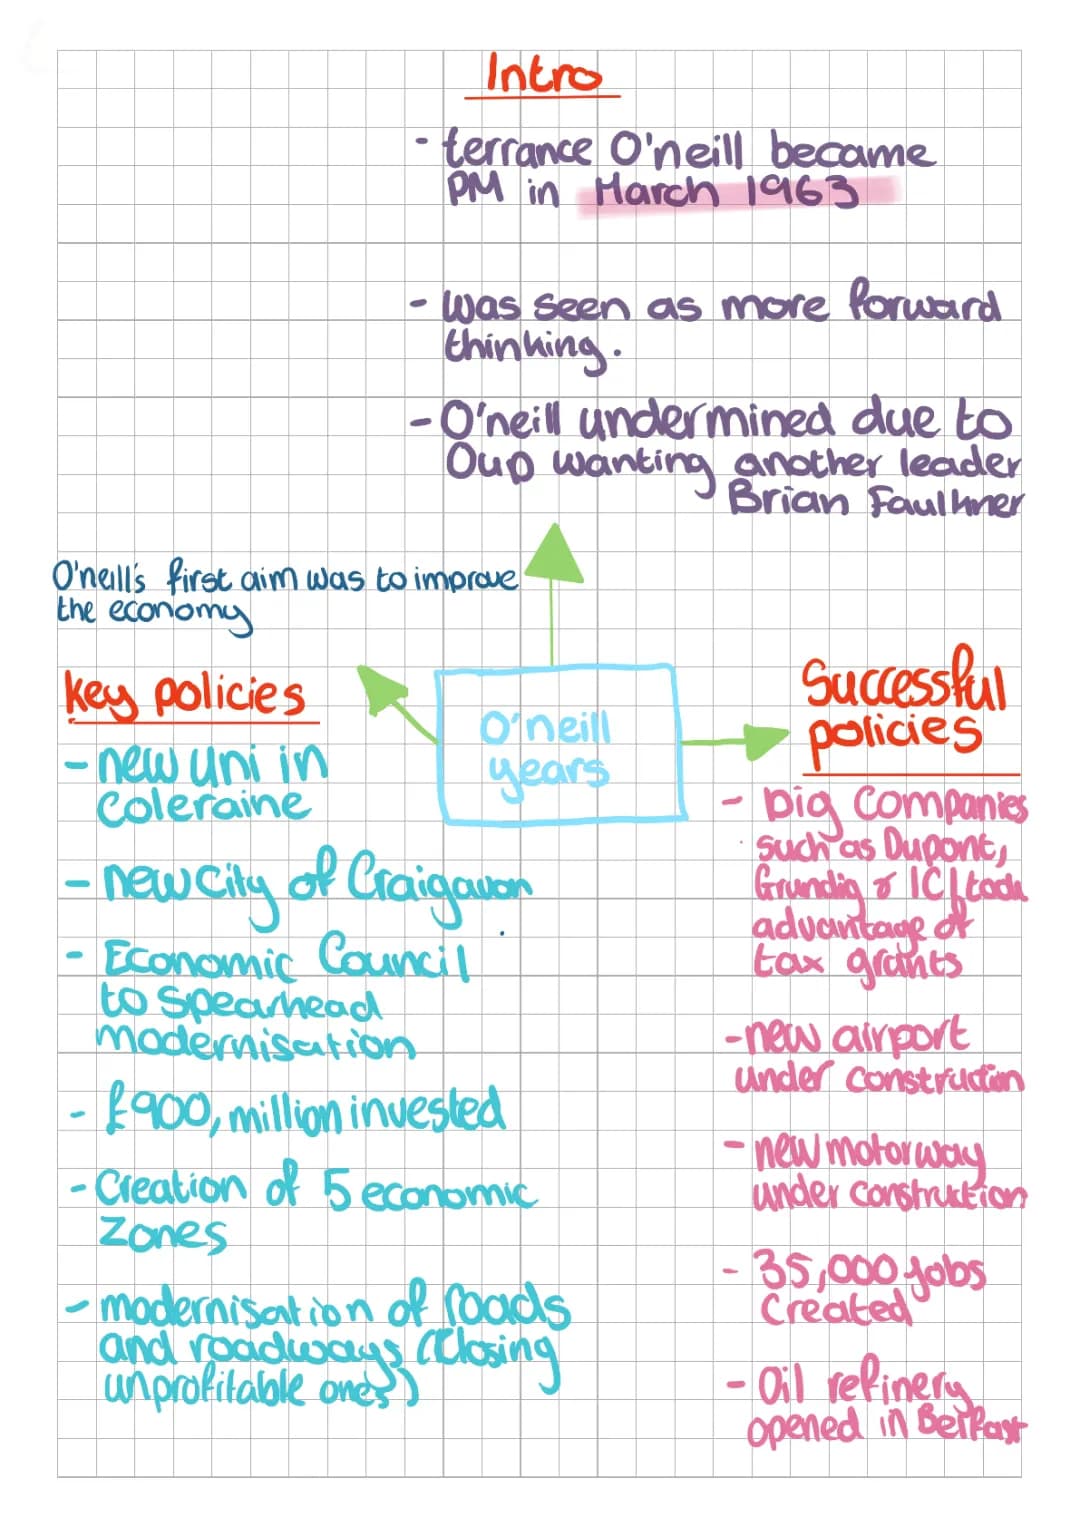 Intro
- terrance O'neill became
PM in March 1963
- was seen as more forward
thinking.
- O'neill undermined due to
Oup wanting another leader
Brian Faulkner
O'neill's first aim was to improve
the economy
O'neill
years
key policies
- new uni in
Coleraine
- new City of Craigavon
- Economic Council
to spearhead
modernisation
- £900, million invested
- Creation of 5 economic
zones
- modernisation of roads
and roadways (Closing
unprofitable ones)
Successful
policies
- big Companies
such as Dupont,
Grundig & ICI took
advantage of
tax grants
- new airport
under construction
- new motorway
under construction
- 35,000 jobs
created
- Oil refinery
opened in Belfast